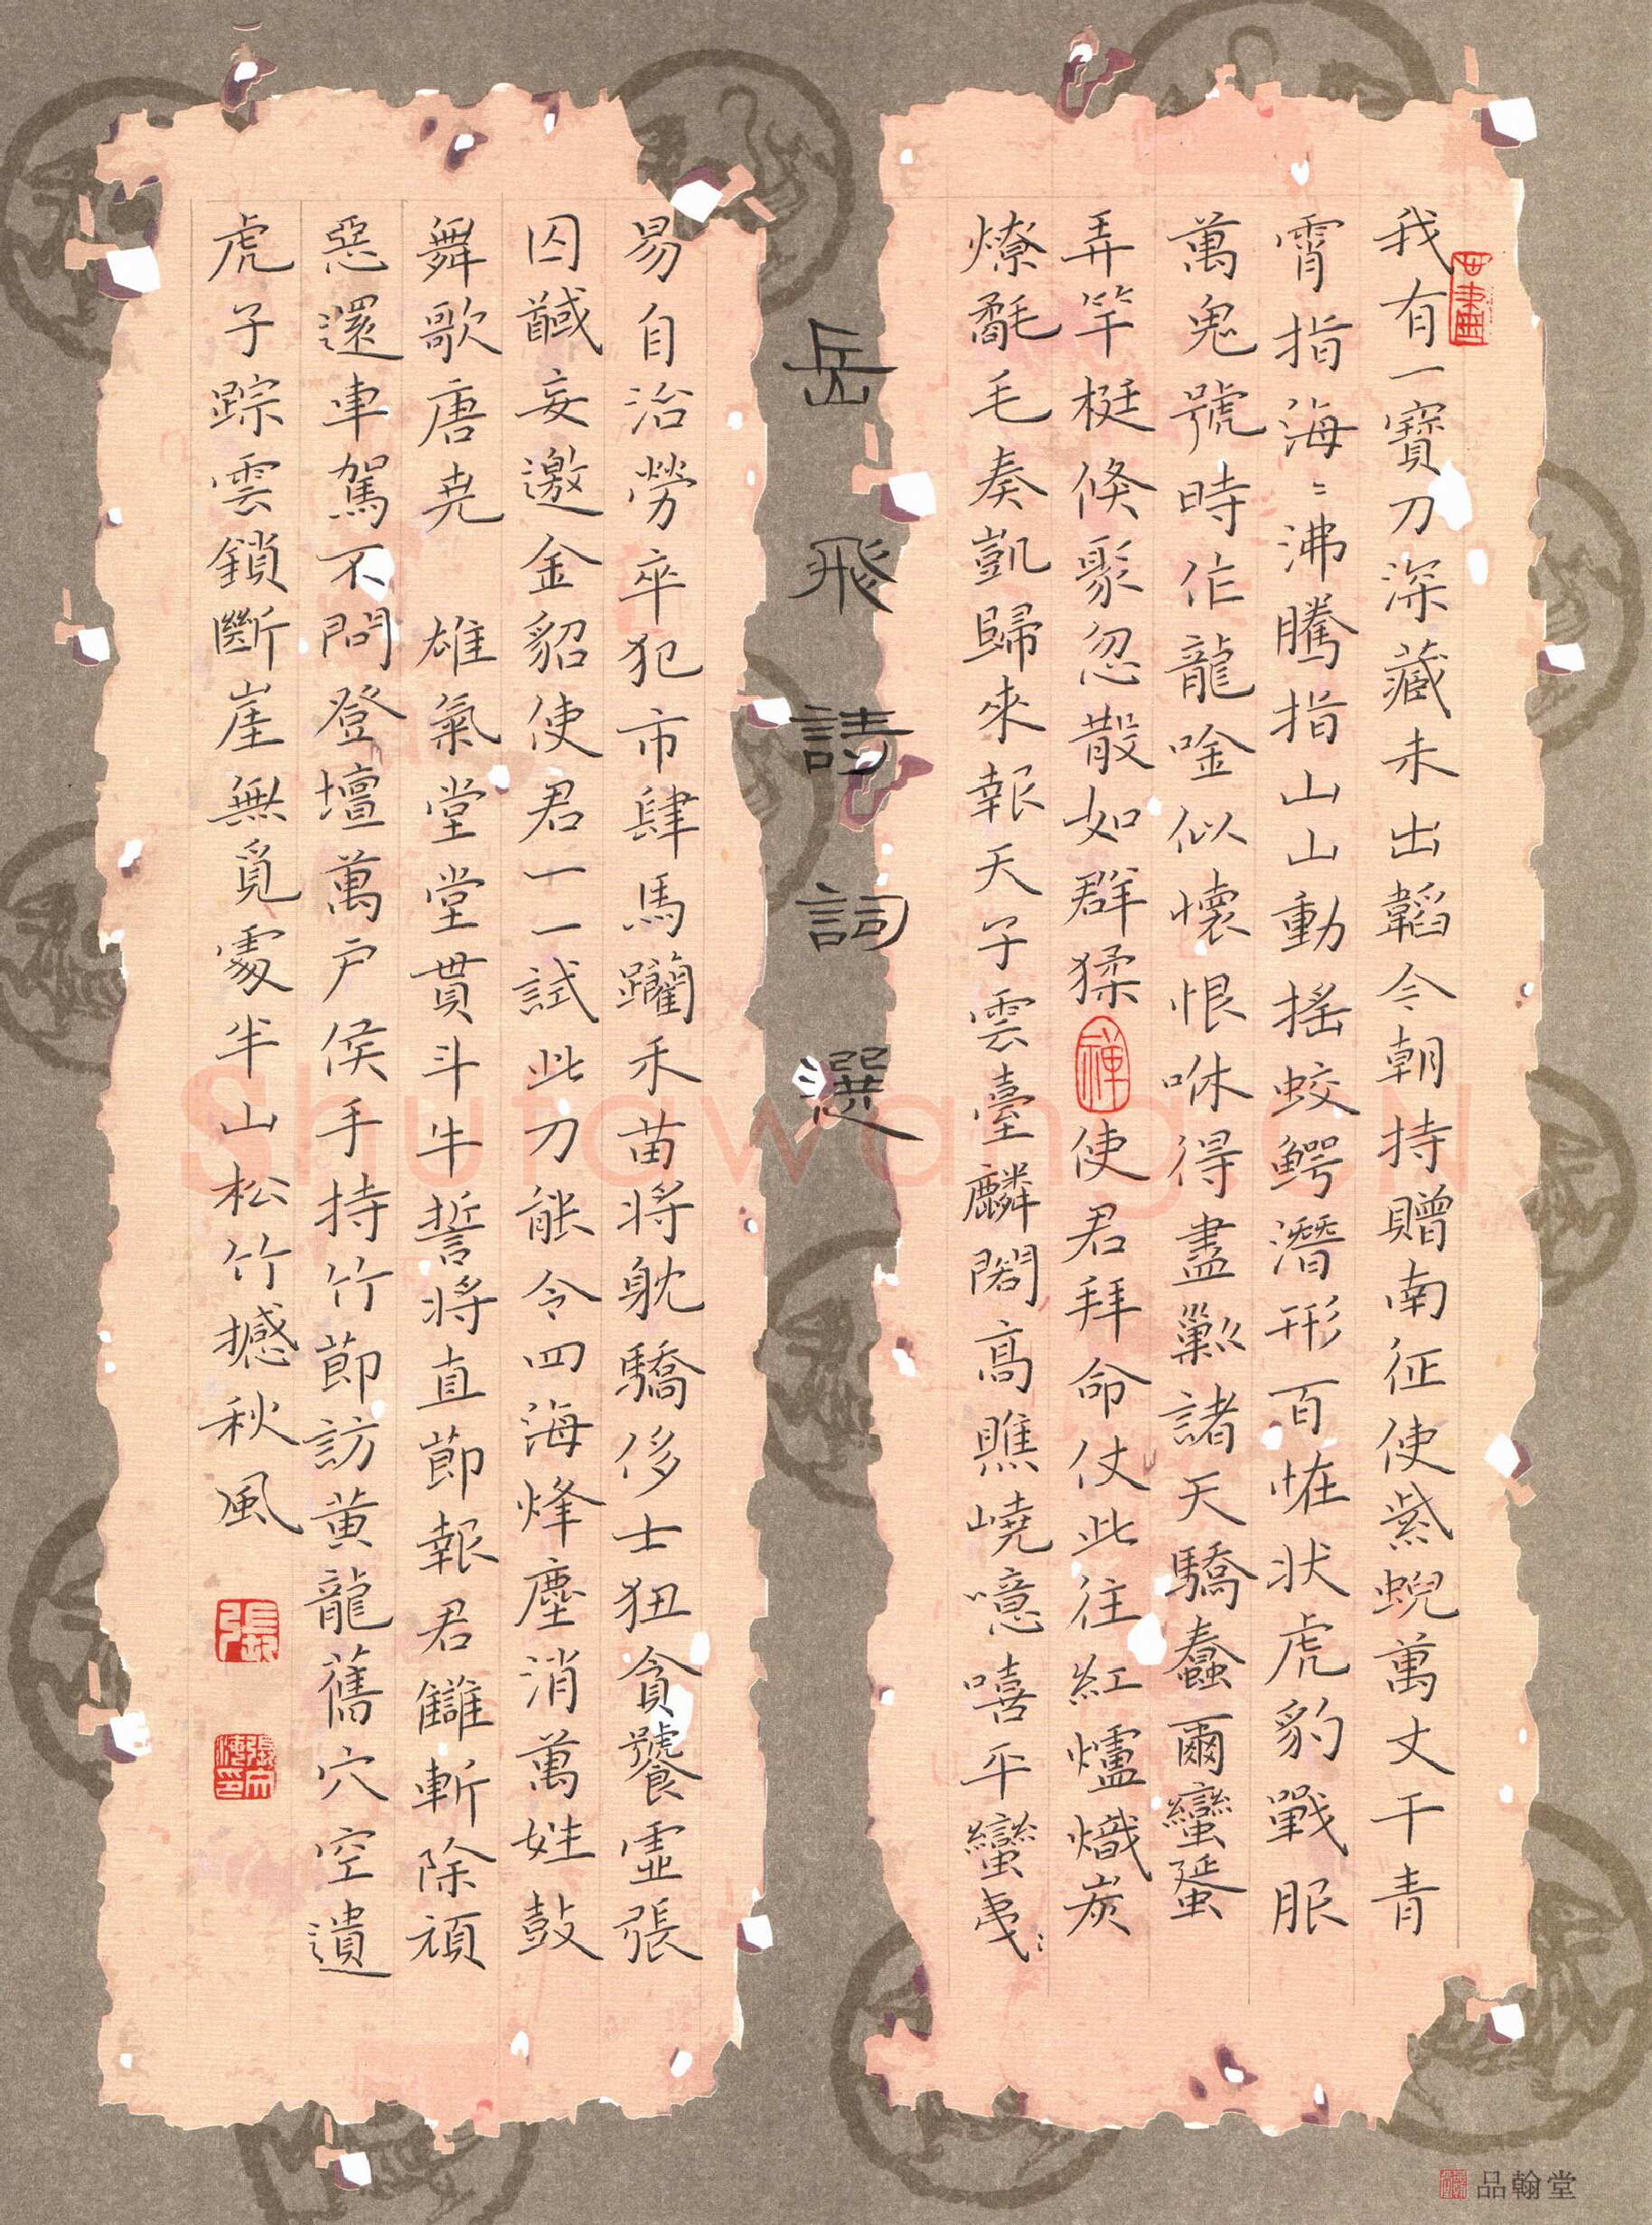 我有一寶刀深藏未出韜今朝持贈南征使紫蜺萬丈干青
霄指海〻沸騰指山山動搖蛟鱷潛形百怪状虎豹戰服
萬鬼號時作龍唫似懷恨咻得盡勦諸天驕蠢爾蠻蜑
弄竿梃倏聚忽散如群猱使君拜命仗此往紅爐熾炭
燎氄毛奏凱歸來報天子雲臺麟閣高瞧嶢噫嘻平蠻夷〻
岳飛詩詞選
易自治勞卒犯市肆馬躪禾苗将躭驕侈士狃貪饕虛張
囚馘妄邀金貂使君一一試此刀能令四海烽塵消萬姓鼓
舞歌唐尭 雄氣堂堂貫斗牛誓将直節報君讎斬除頑
惡還車駕不問登壇萬户侯手持竹節訪黄龍舊穴空遺
虎子踪雲鎖斷崖無覓處半山松竹撼秋風
張
Shufawang.CN
品翰堂